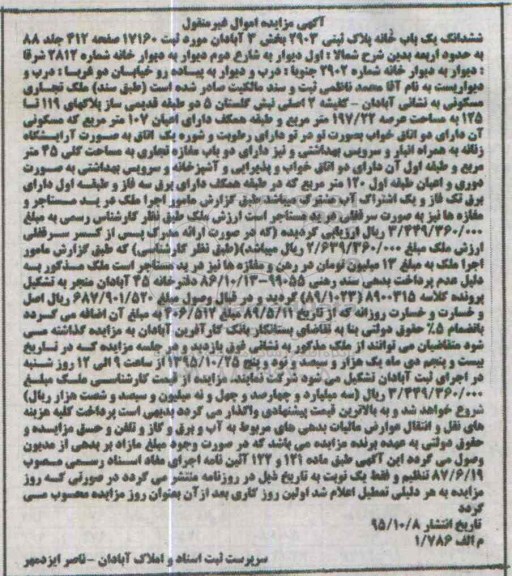 آگهی مزایده اموال غیرمنقول
ششدانگ یک باب خانه پلاک ثبتی ۲۹۰۳ بخش ۳ آبادان مورد ثبت ۱۷۱۶۰ صفحه ۳۱۲ جلد ۸۸
به حدود اربعه بدین شرح شمالا : اول دیوار به شارع دوم دیوار به دیوار خانه شماره ۲۸۱۲ شرقا
: دیوار به دیوار خانه شماره ۲۹۰۲ جنوبا : درب و دیوار به پیاده رو خیابان دو غربا : درب و
دیواریست به نام آقا محمد ناظمی ثبت و سند مالکیت صادر شده است (طبق سند) ملک تجاری
مسکونی به نشانی آبادان – کفیشه ۲ اصلی نبش گلستان ۵ دو طبقه قدیمی ساز پلاکهای ۱۱۹ تا
۱۲۵ به مساحت عرصه ۱۹۷/۲۲ متر مربع و طبقه همکف دارای اعیان ۱۰۷ متر مربع که مسکونی
آن دارای دو اتاق خواب بصورت تو در تو دارای رطوبت و شوره یک اتاق به صورت آرایشگاه
زنانه به همراه انبار و سرویس بهداشتی و نیز دارای دو باب مغازه تجاری به مساحت کلی ۴۵ متر
مربع و طبقه اول آن دارای دو اتاق خواب و پذیرایی و آشپزخانه و سرویس بهداشتی به صورت
دوری و اعیان طبقه اول ۱۲۰ متر مربع که در طبقه همکف دارای برق سه فاز و طبقه اول دارای
برق تک فاز و یک اشتراک آب مشترک میباشد طبق گزارش مامور اجرا ملک در ید مستاجر و
مغازه ها نیز به صورت سرقفلی در ید مستاجر است ارزش ملک طبق نظر کارشناس رسمی به مبلغ
۳/۴۴۹/۳۶۰/۰۰۰ ریال ارزیابی گردیده (که در صورت ارائه مدرک پس از کسر سرقفلی
ارزش ملک مبلغ ۲/۶۳۹/۳۶۰/۰۰۰ ریال میباشد)(طبق نظر کارشناس) که طبق گزارش مامور
اجرا ملک به مبلغ ۱۳ میلیون تومان در رهن و مغازه ها نیز در ید مستاجر است ملک مذکور به
دلیل عدم پرداخت بدهی سند رهنی ۹۹۰۵۵–۸۶/۱۰/۱۳ دفترخانه ۴۵ آبادان منجر به تشکیل
پرونده کلاسه ۸۹۰۰۳۱۵ (۸۹/۱۰۲۳) گردید و در قبال وصول مبلغ ۶۸۷/۹۰۱/۵۲۰ ریال اصل
و خسارت و خسارت روزانه که از تاریخ ۸۹/۵/۱۱ مبلغ ۳۰۶/۵۱۲ به مبلغ آن اضافه می گردد
بانضمام ۵٪ حقوق دولتی بنا به تقاضای بستانکار بانک کارآفرین آبادان به مزایده گذاشته می
شود متقاضیان می توانند از ملک مذکور به نشانی فوق بازدید و در جلسه مزایده که در تاریخ
بیست و پنجم دی ماه یک هزار و سیصد و نود و پنج ۱۳۹۵/۱۰/۲۵ از ساعت ۹ الی ۱۲ روز شنبه
در اجرای ثبت آبادان تشکیل می شود شرکت نمایند. مزایده از قیمت کارشناسی ملک مبلغ
۳/۴۴۹/۳۶۰/۰۰۰ ریال (سه میلیارد و چهارصد و چهل و نه میلیون و سیصد و شصت هزار ریال)
شروع خواهد شد و به بالاترین قیمت پیشنهادی واگذار می گردد بدیهی است پرداخت کلیه هزینه
های نقل و انتقال عوارض مالیات بدهی های مربوط به آب و برق و گاز و تلفن و حق مزایده و
حقوق دولتی به عهده برنده مزایده می باشد که در صورت وجود مبلغ مازاد بر بدهی از مدیون
وصول می گردد این آگهی طبق ماده ۱۲۱ و ۱۲۲ آئین نامه اجرای مفاد اسناد رسمی مصوب
۸۷/۶/۱۹ تنظیم و فقط یک نوبت به تاریخ ذیل در روزنامه منتشر می گردد در صورتی که روز
مزایده به هر دلیلی تعطیل اعلام شد اولین روز کاری بعد ازآن بعنوان روز مزایده محسوب می
گردد
تاریخ انتشار ۹۵/۱۰/۸
م الف ۱/۷۸۶
سرپرست ثبت اسناد و املاک آبادان –ناصر ایزدمهر